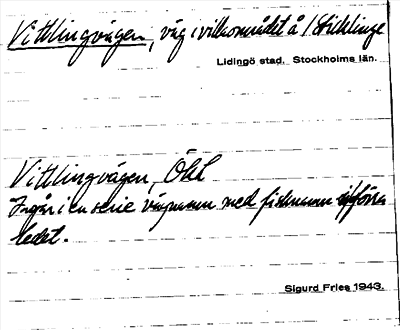 Vittlingvägen, väg i villaområdet å / Sticklinge
Lidingö stad. Stockholms län.
Vittlingvägen, Ökl
Ingår i en serie vägnamn med fisknamn i förra
ledet.
Sigurd Fries 1943.